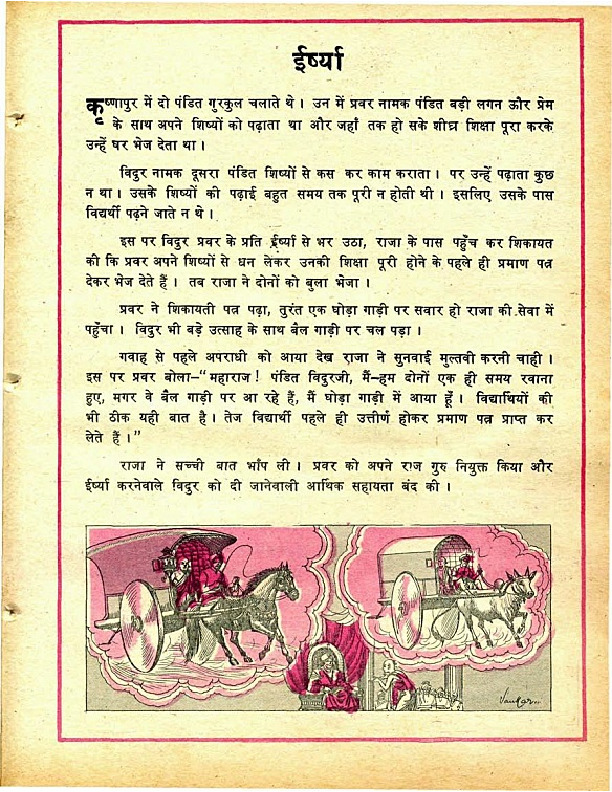 ईर्ष्या
कृष्णापुर में दो पंडित गुरकुल चलाते थे । उन में प्रवर नामक पंडित बड़ी लगन और प्रेम
के साथ अपने शिष्यों को पढ़ाता था और जहाँ तक हो सके शीघ्र शिक्षा पूरा करके
उन्हें घर भेज देता था ।
विदुर नामक दूसरा पंडित शिष्यों से कस कर काम कराता । पर उन्हें पढ़ाता कुछ
न था । उसके शिष्यों की पढ़ाई बहुत समय तक पूरी न होती थी । इसलिए उसके पास
विद्यर्थी पढ़ने जाते न थे ।
इस पर विदुर प्रवर के प्रति ईर्ष्या से भर उठा, राजा के पास पहुँच कर शिकायत
की कि प्रवर अपने शिष्यों से धन लेकर उनकी शिक्षा पूरी होने के पहले ही प्रमाण पत्र
देकर भेज देते हैं । तब राजा ने दोनों को बुला भेजा ।
प्रवर ने शिकायती पत्र पढ़ा, तुरंत एक घोड़ा गाड़ी पर सवार हो राजा की सेवा में
पहुँचा । विदुर भी बड़े उत्साह के साथ बैल गाड़ी पर चल पड़ा ।
गवाह से पहले अपराधी को आया देख राजा ने सुनवाई मुल्तवी करनी चाही ।
इस पर प्रवर बोला–“महाराज ! पंडित विदुरजी, मैं–हम दोनों एक ही समय रवाना
हुए, मगर वे बैल गाड़ी पर आ रहे हैं, मैं घोड़ा गाड़ी में आया हूँ । विद्यार्थियों की
भी ठीक यही बात है । तेज विद्यार्थी पहले ही उत्तीर्ण होकर प्रमाण पत्र प्राप्त कर
लेते हैं ।”
राजा ने सच्ची बात भाँप ली । प्रवर को अपने राज गुरु नियुक्त किया और
ईर्ष्या करनेवाले विदुर को दी जानेवाली आर्थिक सहायता बंद की ।